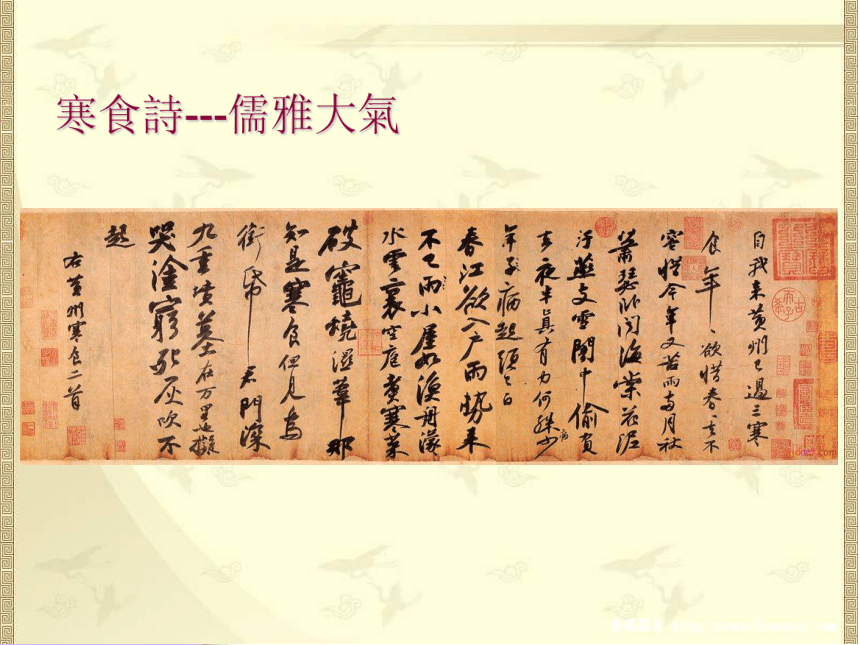 寒食詩---儒雅大氣
自我来黄州已過三寒
食年〻欲惜春春去不
容惜今年又苦雨兩月秋
蕭瑟卧聞海棠花泥
汙燕支雪闇中偷負
去夜半真有力何殊少
年子病起頭已白
春江欲入戶雨勢来
不已雨小屋如漁舟濛〻
水雲裏空庖煮寒菜
破竈燒濕葦那
知是寒食但見烏
銜帋君門深
九重墳墓在万里也擬
哭塗窮死灰吹不
起
右黄州寒食二首